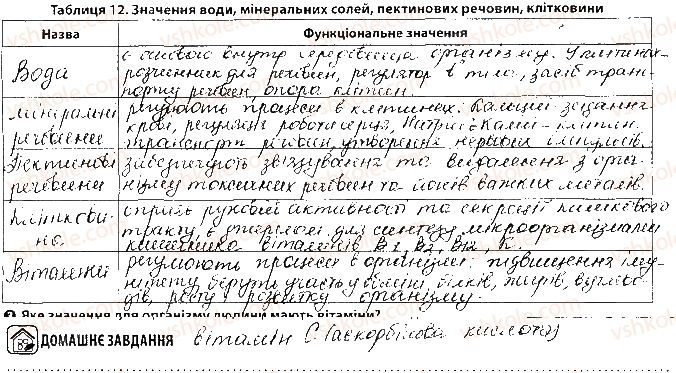 Таблиця 12. Значення води, мінеральних солей, пектинових речовин, клітковини
Назва Функціональне значення
є основою внутр. середовища організму. У клітинах-
Вода розчинник для речовин, регулятор t° тіла, засіб транс-
порту речовин, опора клітин.
Мінеральні регулюють процеси в клітинах. Кальцій - зсідання
речовини крові, регуляція роботи серця, Натрій і Калій - клітин.
транспорт речовин, утворення нервових імпульсів.
Пектинові забезпечують зв'язування та видалення з орга-
речовини нізму токсичних речовин та йонів важких металів.
Кліткови- сприяє руховій активності та секреції кишкового
на тракту, є матеріалом для синтезу мікроорганізмами
кишківника вітамінів B1, B2, B12, K.
Вітаміни регулюють процеси в організмі: підвищення іму-
нітету, беруть участь у обміні білків, жирів, вуглево-
дів, росту і розвитку організму.
Яке значення для організму людини мають вітаміни?
ДОМАШНЄ ЗАВДАННЯ вітамін C (аскорбінова кислота)